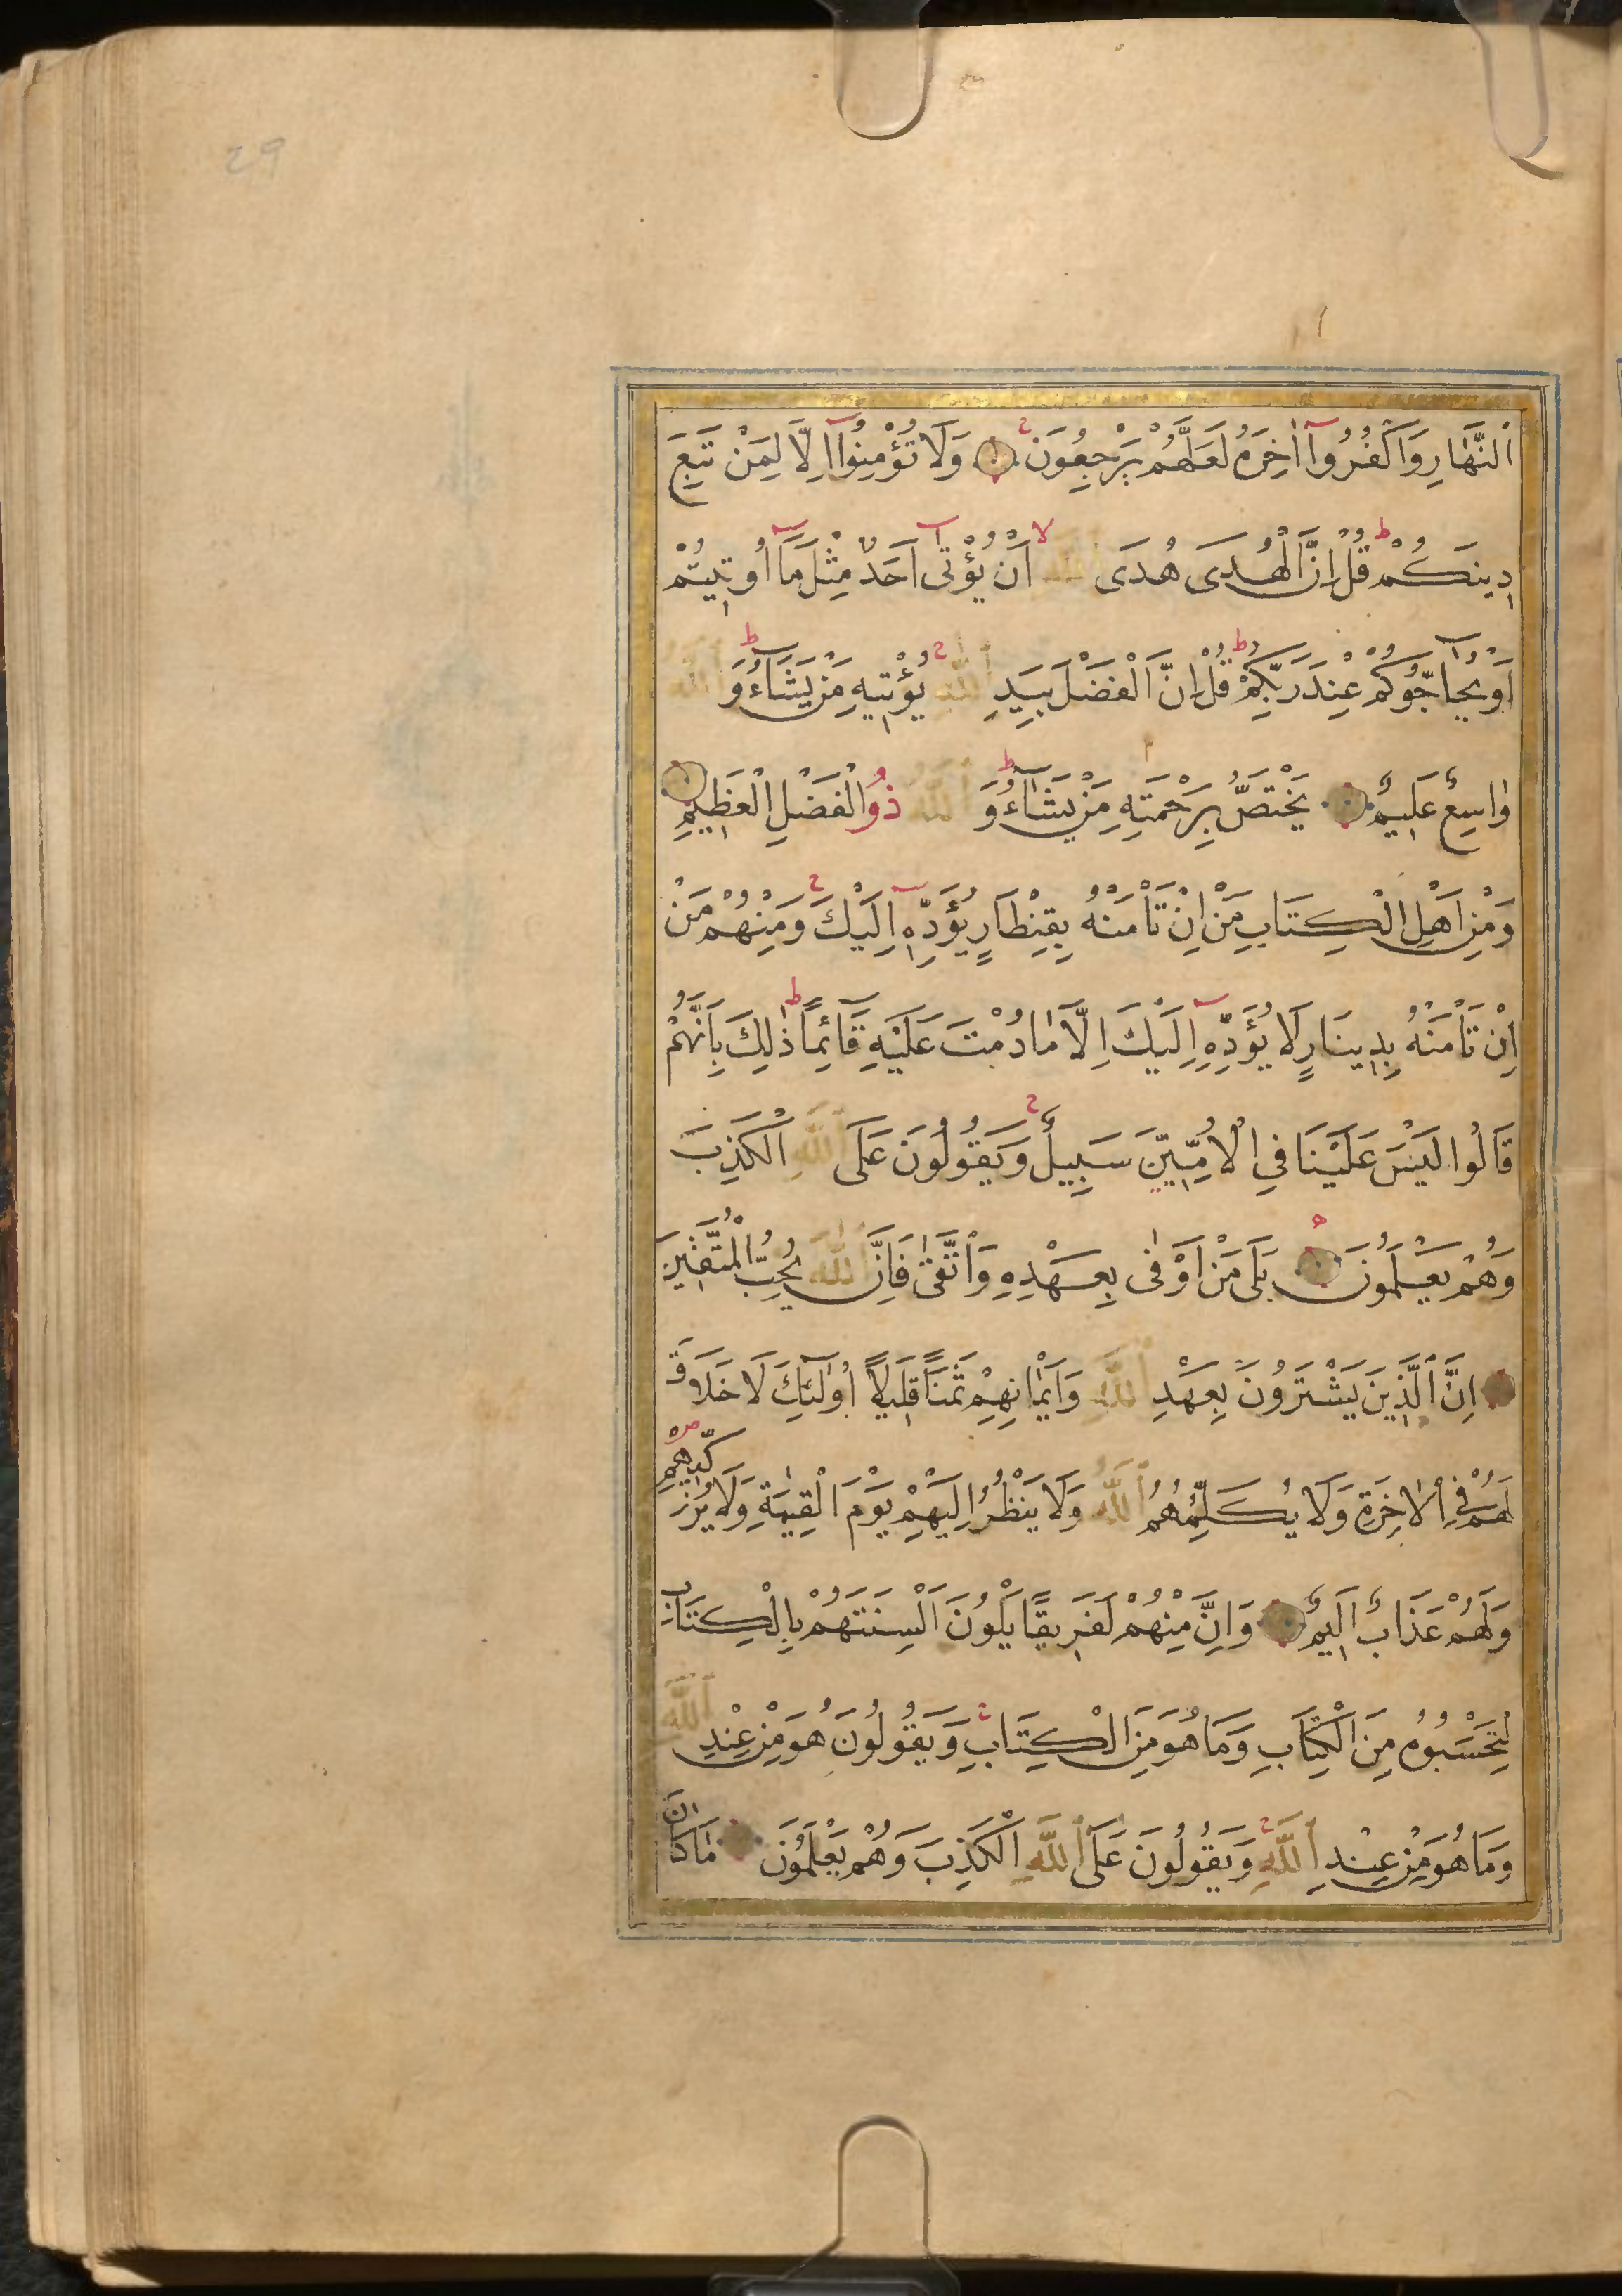 اَلنَّهَارِ وَاكْفُرُوا اٰخِرَهُ لَعَلَّهُمْ يَرْجِعُونَ وَلَا تُؤْمِنُوا اِلَّا لِمَنْ تَبِعَ
دِينَكُمْ قُلْ اِنَّ الْهُدَى هُدَى اللّٰهِ اَنْ يُؤْتٰى اَحَدٌ مِثْلَ مَا اُوتِيتُمْ
اَوْ يُحَاجُّوكُمْ عِنْدَ رَبِّكُمْ قُلْ اِنَّ الْفَضْلَ بِيَدِ اللّٰهِ يُؤْتِيهِ مَنْ يَشَاءُ وَاللّٰهُ
وَاسِعٌ عَلِيمٌ يَخْتَصُّ بِرَحْمَتِهِ مَنْ يَشَاءُ وَاللّٰهُ ذُوالْفَضْلِ الْعَظِيمِ
وَمِنْ اَهْلِ الْكِتَابِ مَنْ اِنْ تَأْمَنْهُ بِقِنْطَارٍ يُؤَدِّهِ اِلَيْكَ وَمِنْهُمْ مَنْ
اِنْ تَأْمَنْهُ بِدِينَارٍ لَا يُؤَدِّهِ اِلَيْكَ اِلَّا مَا دُمْتَ عَلَيْهِ قَائِمًا ذٰلِكَ بِاَنَّهُمْ
قَالُوا لَيْسَ عَلَيْنَا فِي الْاُمِّيِّينَ سَبِيلٌ وَيَقُولُونَ عَلَى اللّٰهِ الْكَذِبَ
وَهُمْ يَعْلَمُونَ بَلَى مَنْ اَوْفٰى بِعَهْدِهِ وَاتَّقٰى فَاِنَّ اللّٰهَ يُحِبُّ الْمُتَّقِينَ
اِنَّ الَّذِينَ يَشْتَرُونَ بِعَهْدِ اللّٰهِ وَاَيْمَانِهِمْ ثَمَنًا قَلِيلًا اُولٰئِكَ لَا خَلَاقَ
لَهُمْ فِي الْاٰخِرَةِ وَلَا يُكَلِّمُهُمُ اللّٰهُ وَلَا يَنْظُرُ اِلَيْهِمْ يَوْمَ الْقِيٰمَةِ وَلَا يُزَكِّيهِمْ
وَلَهُمْ عَذَابٌ اَلِيمٌ وَاِنَّ مِنْهُمْ لَفَرِيقًا يَلْوُنَ اَلْسِنَتَهُمْ بِالْكِتَابِ
لِتَحْسَبُوهُ مِنَ الْكِتَابِ وَمَا هُوَ مِنَ الْكِتَابِ وَيَقُولُونَ هُوَ مِنْ عِنْدِ اللّٰهِ
وَمَا هُوَ مِنْ عِنْدِ اللّٰهِ وَيَقُولُونَ عَلَى اللّٰهِ الْكَذِبَ وَهُمْ يَعْلَمُونَ مَا كَانَ